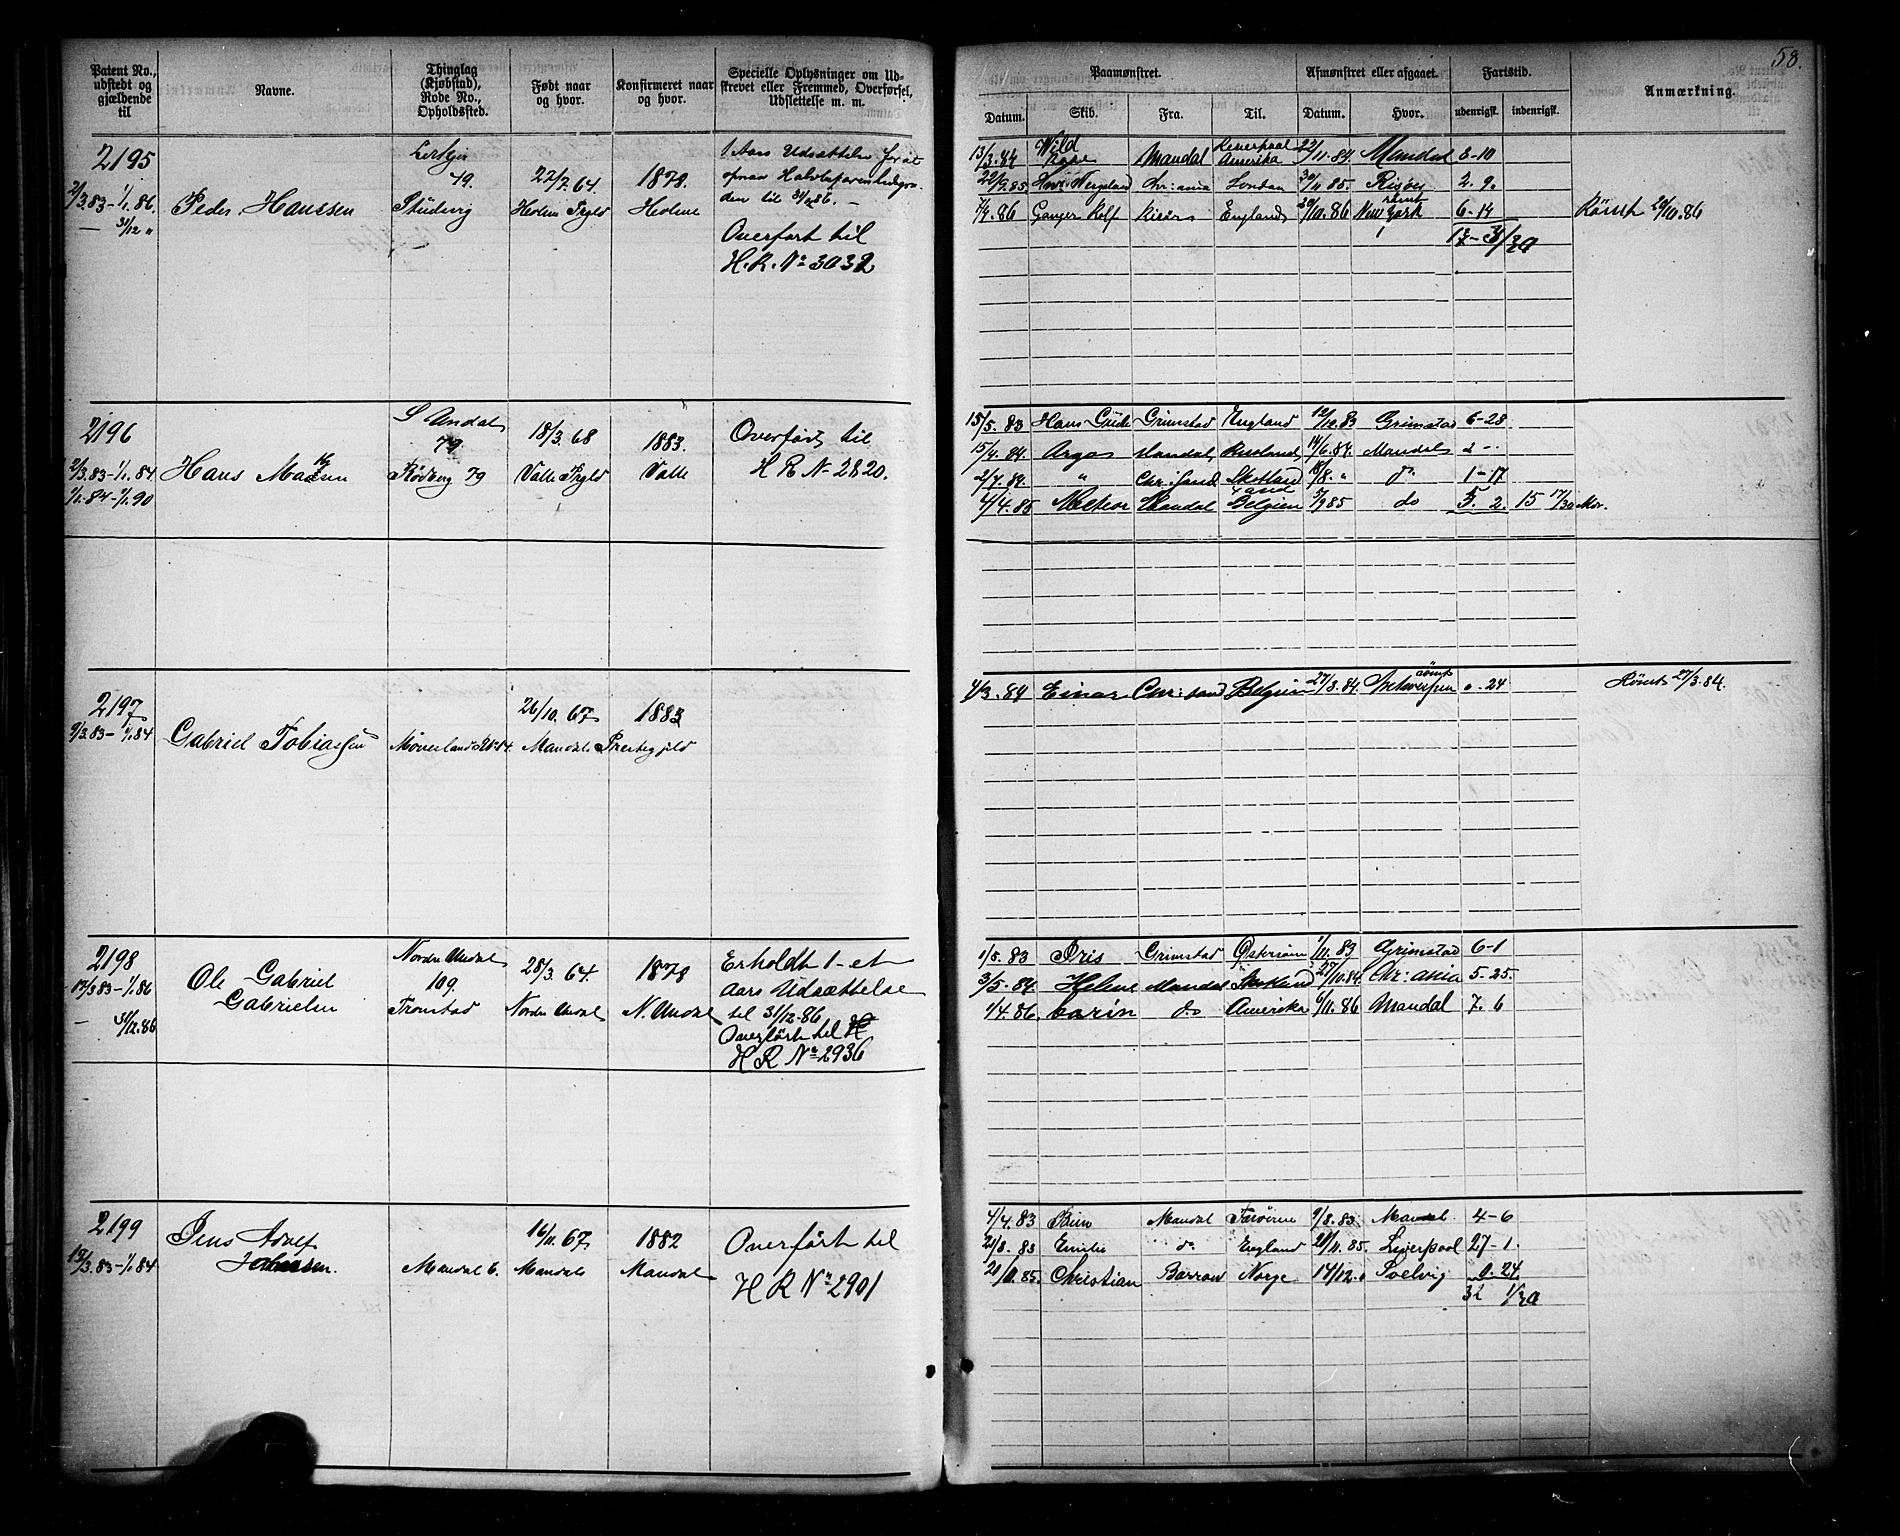 58.
Patent No., udstedt og gjældende til
Navne.
Thinglag (Kjøbstad), Rode No., Opholdssted.
Født naar og hvor.
Konfirmeret naar og hvor.
Specielle Oplysninger om Udskrevet eller Fremmed, Overførsel, Udslettelse m. m.
Paamønstret.
Afmønstret eller afgaaet.
Fartstid.
Anmærkning.
Datum. Skib. Fra. Til. Datum. Hvor. udenrigsk. indenrigsk.
2195
2/3.83-1/1.86.
— 31/12 "
Peder Hanssen
49.
22/7.64.
Holme Prgld
1878.
Holme
1 Aars Udsættelse for at
den til 31/12 86. —
Overført til
H.R. No 3032
13/3.84 Wild Rose Mandal Liverpool Amerika 22/11.84. Mandal 8-10
22/9.85 Hen. Wergeland Chr:ania London 30/11 85. Risør 2. 9.
7/4.86 Ganger Rolf Risør England 20/10.86 New York rømt 6-14 Rømt 20/10.86
2196
2/3.83-1/1.84.
1/1.84-1/1.90
Hans Madsen
S Undal
79
Rødberg 79
18/3.68
Valle Prgld
1883.
Valle
Overført til
H R No 2820.
15/5.83 Hans Gude Grimstad England 12/12.83 Grimstad 6-28
15/4.84 Argo Mandal Rusland 14/6.84. Mandal 2 -
2/7.84. " Chr:sand Skotland 18/8." do 1-17
4/4.85 Meteor Mandal Belgien 5/9 85 do 5. 2. 15 17/30 Mdr.
2197
9/3.83-1/1.84
Gabriel Tobiassen
26/10.67
Mandals Præstegjeld
1883
4/3.84 Einar Chr:sand Belgien 27/3.84. Antwerpen rømt 0.24 Rømt 27/3.84.
2198
17/3 83-1/1.86
— 31/12.86
Ole Gabriel
Gabrielsen
Nordre Undal
109.
Tronstad
28/3.64.
Nordre Undal
1878
N. Undal
Erholdt 1-et
Aars Udsættelse
til 31/12-86
Overført til
H R No 2936
1/5.83 Iris Grimstad Østersøen 1/11.83 Grimstad 6-1
3/5-84. Helene Mandal Skotland 27/10.84. Chr:ania 5-25.
1/4.86. Carin do Amerika 6/11.86 Mandal 7. 6
2199
19/3.83-1/1.84
Jens Adolf
Johnsen.
Mandal 6.
16/11.67
Mandal
1882
Mandal
Overført til
H R No 2901
4/4.83 Mandal Færøerne 9/8.83. Mandal 4-6
21/8.83 Emilie do England 20/11.85. Liverpool 27-1.
21/11.85. Christian Barrow Norge 14/12." Svelvig 0.24
32 1/30